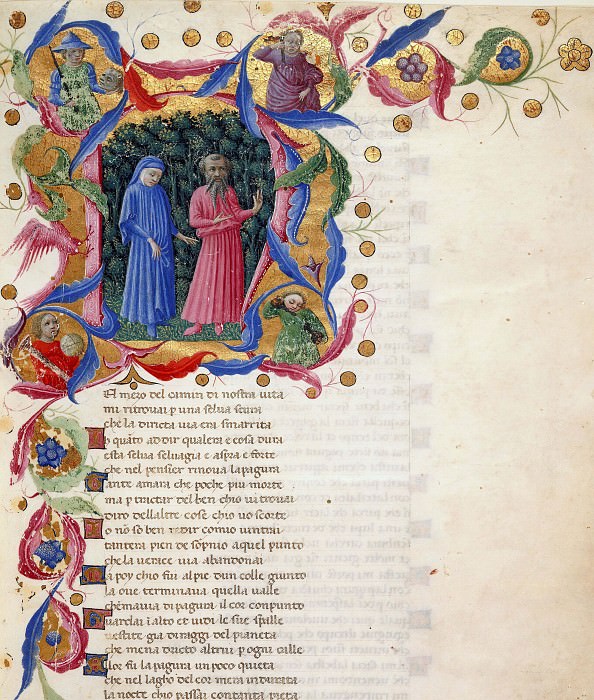 El mezo del camin di nostra vita
mi ritrovai p una selva scura
che la diricta via era smarrita
h quāto ad dir qualera e cosa dura
esta selva selvagia e aspra e forte
che nel pensier rinova la pagura
ante amara che poche piu morte
ma p tractar del ben chio vi trovai
diro dellaltre cose chio vo scorte
o nō so ben redir comio ventrai
tantera pien de sōpnio aquel punto
che la verice via abandonai
a poy chio fui alpie dun colle giunto
la ove terminava quella valle
chemavia di pagura il cor conpunto
uardai ī alto et vidi le sue spalle
vestite gia diraggi del pianeta
che mena dricto altrui p ogni calle
llor fu la pagura un poco quieta
che nel lagho del cor mera indurata
la nocte chio passai contanta pieta